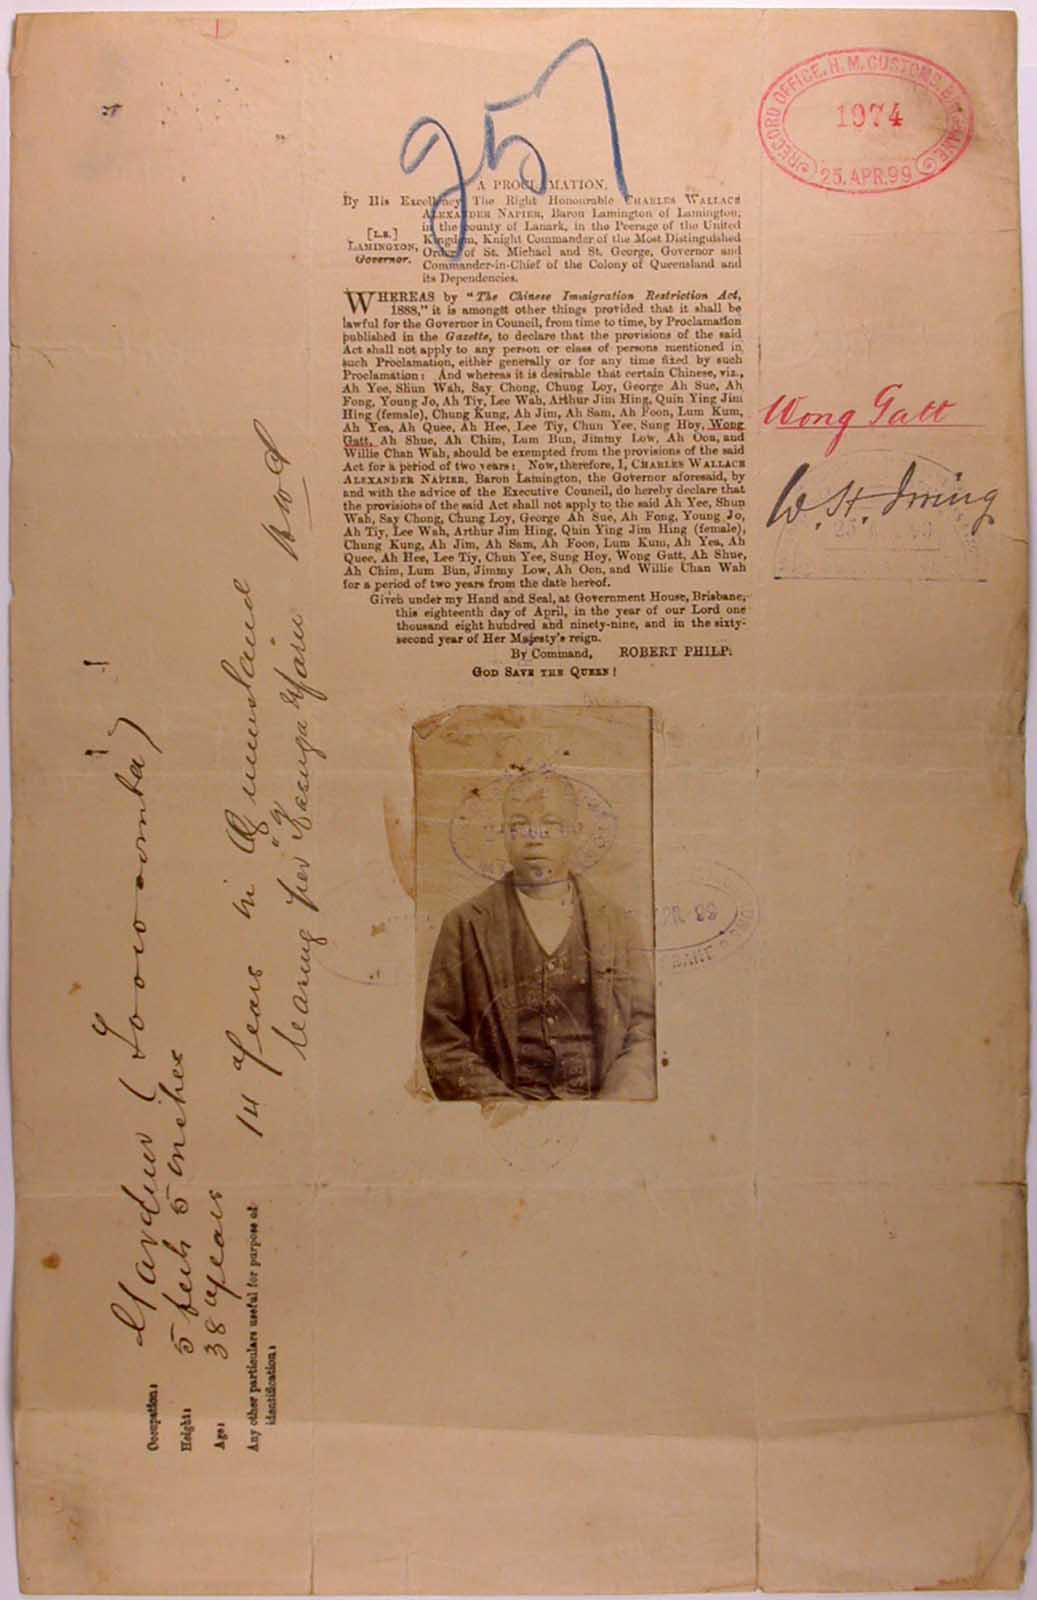 257
RECORD OFFICE, H. M. CUSTOMS, BRISBANE
1974
25. APR. 99
A PROCLAMATION.
By His Excellency The Right Honourable CHARLES WALLACE
ALEXANDER NAPIER, Baron Lamington of Lamington,
in the county of Lanark, in the Peerage of the United
[L.S.] Kingdom, Knight Commander of the Most Distinguished
LAMINGTON, Order of St. Michael and St. George, Governor and
Governor. Commander-in-Chief of the Colony of Queensland and
its Dependencies.
WHEREAS by "The Chinese Immigration Restriction Act,
1888," it is amongst other things provided that it shall be
lawful for the Governor in Council, from time to time, by Proclamation
published in the Gazette, to declare that the provisions of the said
Act shall not apply to any person or class of persons mentioned in
such Proclamation, either generally or for any time fixed by such
Proclamation: And whereas it is desirable that certain Chinese, viz.,
Ah Yee, Shun Wah, Say Chong, Chung Loy, George Ah Sue, Ah
Fong, Young Jo, Ah Tiy, Lee Wah, Arthur Jim Hing, Quin Ying Jim
Hing (female), Chung Kung, Ah Jim, Ah Sam, Ah Foon, Lum Kum,
Ah Yea, Ah Quee, Ah Hee, Lee Tiy, Chun Yee, Sung Hoy, Wong
Gatt, Ah Shue, Ah Chim, Lum Bun, Jimmy Low, Ah Oon, and
Willie Chan Wah, should be exempted from the provisions of the said
Act for a period of two years: Now, therefore, I, CHARLES WALLACE
ALEXANDER NAPIER, Baron Lamington, the Governor aforesaid, by
and with the advice of the Executive Council, do hereby declare that
the provisions of the said Act shall not apply to the said Ah Yee, Shun
Wah, Say Chong, Chung Loy, George Ah Sue, Ah Fong, Young Jo,
Ah Tiy, Lee Wah, Arthur Jim Hing, Quin Ying Jim Hing (female),
Chung Kung, Ah Jim, Ah Sam, Ah Foon, Lum Kum, Ah Yea, Ah
Quee, Ah Hee, Lee Tiy, Chun Yee, Sung Hoy, Wong Gatt, Ah Shue,
Ah Chim, Lum Bun, Jimmy Low, Ah Oon, and Willie Chan Wah
for a period of two years from the date hereof.
Given under my Hand and Seal, at Government House, Brisbane,
this eighteenth day of April, in the year of our Lord one
thousand eight hundred and ninety-nine, and in the sixty-
second year of Her Majesty's reign.
By Command, ROBERT PHILP.
GOD SAVE THE QUEEN!
Wong Gatt
W. H. Irving
APR. 99
Occupation: Gardner (Toowoomba)
Height: 5 feet 5 inches
Age: 38 years
Any other particulars useful for purpose of
identification: 14 years in Queensland and
leaving per "Kasuga Maru"